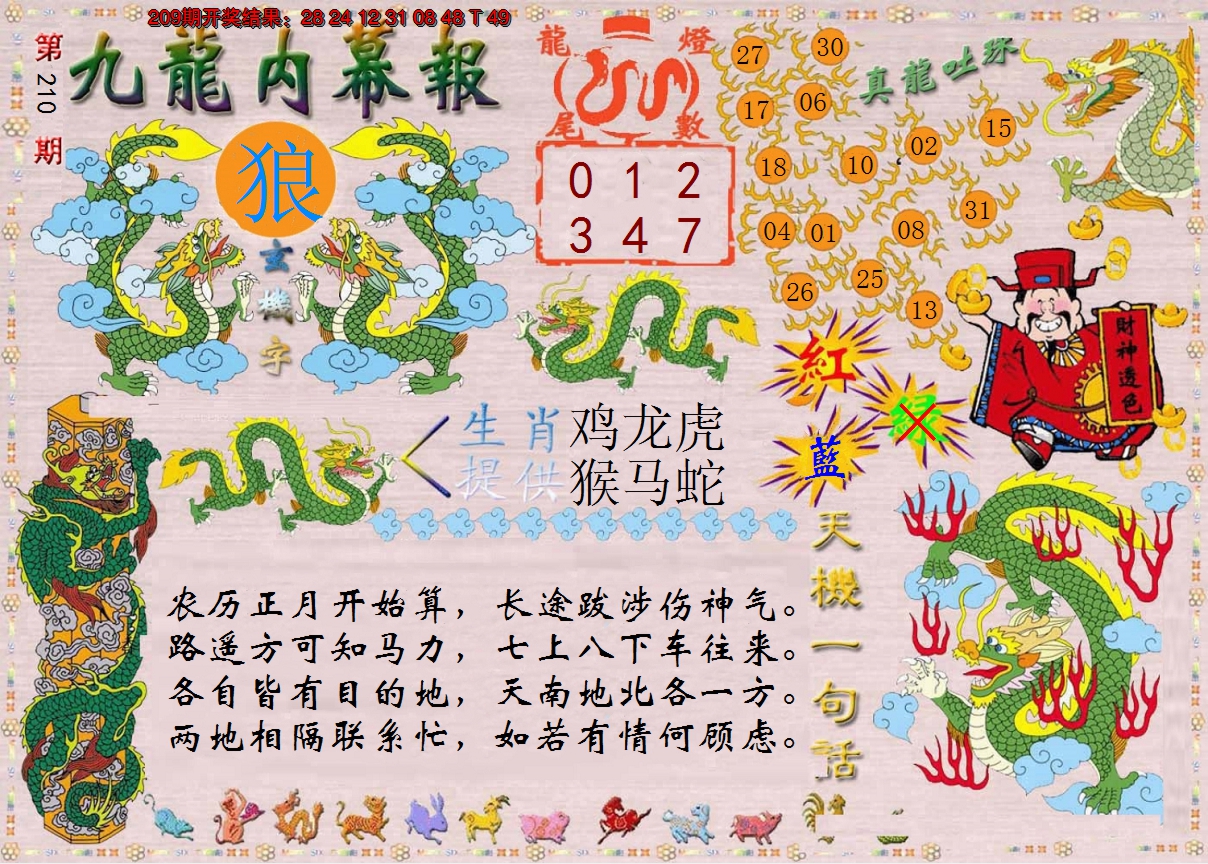 209期开奖结果：28 24 12 31 08 48 T 49
第210期
九龍内幕報
狼
玄機字
龍燈
尾數
0 1 2
3 4 7
真龍吐珠
27 30
17 06
02 15
18 10
31
04 01 08
25
26 13
財神透色
紅
绿
藍
生肖 鸡龙虎
提供 猴马蛇
天機一句話
农历正月开始算，长途跋涉伤神气。
路遥方可知马力，七上八下车往来。
各自皆有目的地，天南地北各一方。
两地相隔联系忙，如若有情何顾虑。